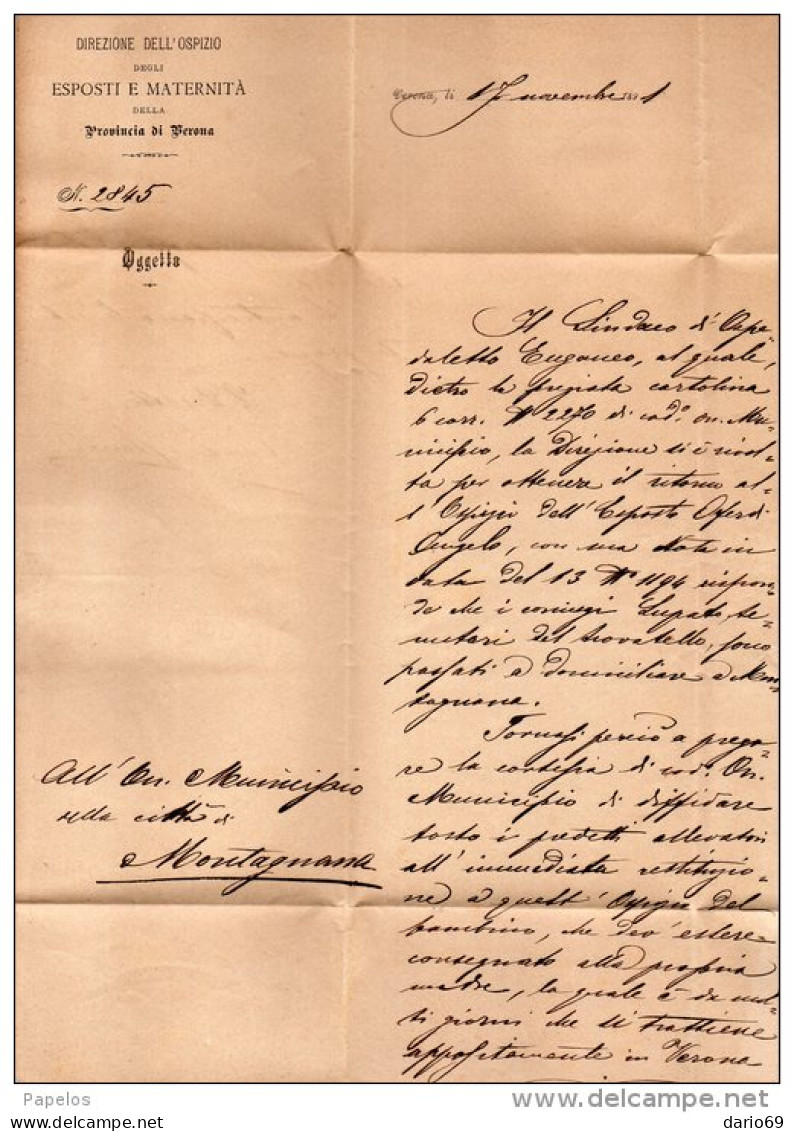 DIREZIONE DELL'OSPIZIO
DEGLI
ESPOSTI E MATERNITÀ
DELLA
Provincia di Verona
Verona, li 17 novembre 1891
N. 2845
Oggetto
Il Sindaco d'Ospe
daletto Euganeo, al quale,
dietro la pregiata cartolina
6 corr. N 2270 di cod.o on. Mu-
nicipio, la Direzione si è rivol-
ta per ottenere il ritorno al-
l'Ospizio dell'Esposto
Angelo, con sua Nota in
data del 13 No 1194 rispon-
de che i coniugi Lupato, te-
nutari del trovatello, sono
passati a domiciliare a Mon-
tagnana.
Tornasi perciò a prega-
re la cortesia di cod.o On.
Municipio di diffidare
tosto i predetti allevatori
all'immediata restituzio-
ne a quest'Ospizio del
bambino, che dev'essere
consegnato alla propria
madre, la quale è da mol-
ti giorni che si trattiene
appositamente in Verona
All'On. Municipio
della città di
Montagnana
Papelos
delcampe.net
dario69